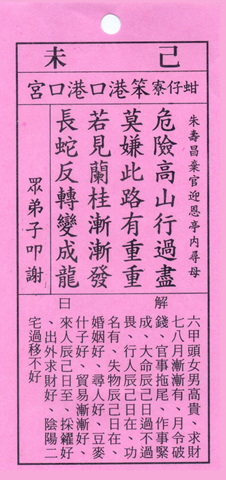 己未
蚶仔寮笨港口港口宮
朱壽昌棄官迎恩亭內尋母
危險高山行過盡
莫嫌此路有重重
若見蘭桂漸漸發
長蛇反轉變成龍
眾弟子叩謝
解曰
六甲頭女男高貴、求財
七八月漸漸有、月令破
錢、官事拖尾、作事緊
成、大命辰己日過不過
畏、行人辰己日在、功
名有、失物辰己日在、
婚姻好、尋人好、豆麥
什子好、貿易漸漸好、
來人辰己日至、採糴好
、出外求財好、陰陽二
宅過移不好